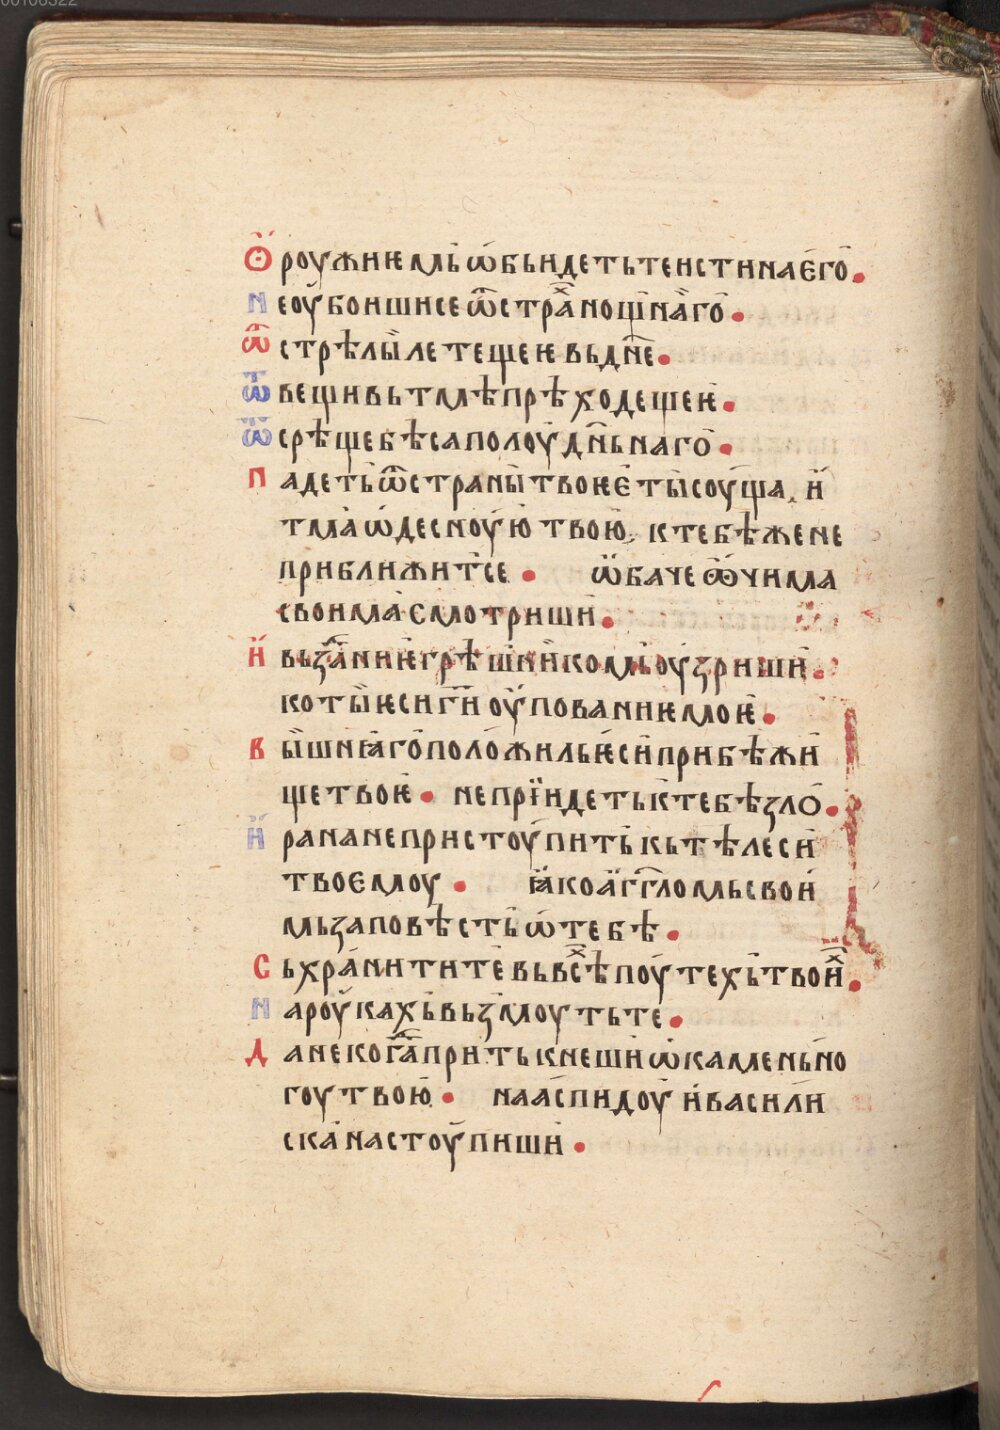 00108322
Ѻ҆роужиѥмь ѡ҆бьидеть те истина ѥ҆го̀.
не оу҆боиши се ѿ страⷯа нощнаго̀.
ѿ стрѣлы̀ летещеѥ вь дн҃е.
ѿ вещи вь тмѣ прѣходещеѥ.
ѿ срѣще бѣса полоу҆дн҃ьнаго̀.
падеть ѿ страны̀ твоѥѥ̀ ты̀соуща, и҆
тма ѡ҆десноую̀ твою̀, к тебѣ же не
приближит се. ѡ҆баче ѻ҆чима
своима смотриши.
и҆ вьзⷣаниѥ грѣшникомь оу҆зриши.
ко ты̀ ѥси гн҃и оу҆пованиѥ моѥ.
вы̀шнꙗго положиль ѥ҆си прибѣжи
ще твоѥ. не прїидеть к тебѣ зло.
и҆ рана не пристоупить кь тѣлеси
твоѥмоу. ꙗ҆ко а҆гг҃ломь свои
мь заповѣсть ѡ҆ тебѣ.
Сьхранити те вь всⷯѣ поутехь твоиⷯ.
на роукахь вьзмоуть те.
да не когⷣа прѣтькнеши ѡ҆ камень но
гоу твою̀. на а҆спидоу и҆ васили
ска настоупиши.